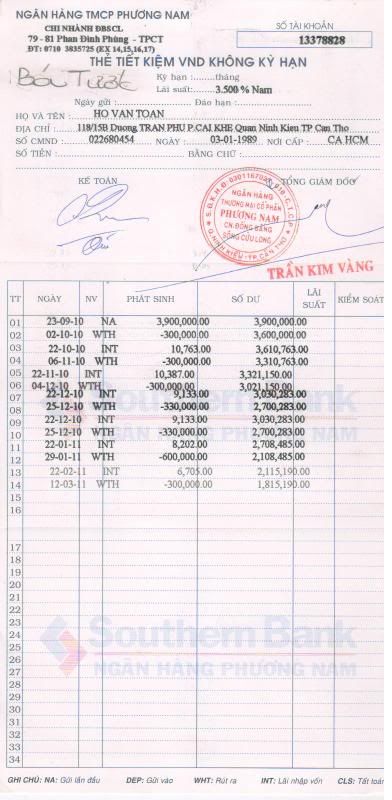 NGÂN HÀNG TMCP PHƯƠNG NAM
CHI NHÁNH ĐBSCL
79 - 81 Phan Đình Phùng - TPCT
ĐT: 0710 3835725 (EX 14,15,16,17)
SỐ TÀI KHOẢN
13378828
THẺ TIẾT KIỆM VND KHÔNG KỲ HẠN
Kỳ hạn : tháng
Lãi suất: 3.500 % Năm
Ngày gửi : Đáo hạn :
HỌ VÀ TÊN : HO VAN TOAN
ĐỊA CHỈ : 118/15B Duong TRAN PHU P.CAI KHE Quan Ninh Kieu TP Can Tho
SỐ CMND : 022680454 NGÀY : 03-01-1989 NƠI CẤP : CA HCM
SỐ TIỀN : BẰNG CHỮ :
KẾ TOÁN TỔNG GIÁM ĐỐC
NGÂN HÀNG
THƯƠNG MẠI CỔ PHẦN
PHƯƠNG NAM
CN.ĐỒNG BẰNG
SÔNG CỬU LONG
Q.NINH KIỀU-TP.CẦN THƠ
TRẦN KIM VÀNG
TT NGÀY NV PHÁT SINH SỐ DƯ LÃI SUẤT KIỂM SOÁT
01 23-09-10 NA 3,900,000.00 3,900,000.00
02 02-10-10 WTH -300,000.00 3,600,000.00
03 22-10-10 INT 10,763.00 3,610,763.00
04 06-11-10 WTH -300,000.00 3,310,763.00
05 22-11-10 INT 10,387.00 3,321,150.00
06 04-12-10 WTH -300,000.00 3,021,150.00
07 22-12-10 INT 9,133.00 3,030,283.00
08 25-12-10 WTH -330,000.00 2,700,283.00
09 22-12-10 INT 9,133.00 3,030,283.00
10 25-12-10 WTH -330,000.00 2,700,283.00
11 22-01-11 INT 8,202.00 2,708,485.00
12 29-01-11 WTH -600,000.00 2,108,485.00
13 22-02-11 INT 6,705.00 2,115,190.00
14 12-03-11 WTH -300,000.00 1,815,190.00
15
16
17
18
19
20
21
22
23
24
25
26
27
28
29
30
31
32
33
34
Southern Bank
NGÂN HÀNG PHƯƠNG NAM
Southern Bank
NGÂN HÀNG PHƯƠNG NAM
GHI CHÚ: NA: Gửi lần đầu DEP: Gửi vào WHT: Rút ra INT: Lãi nhập vốn CLS: Tất toán